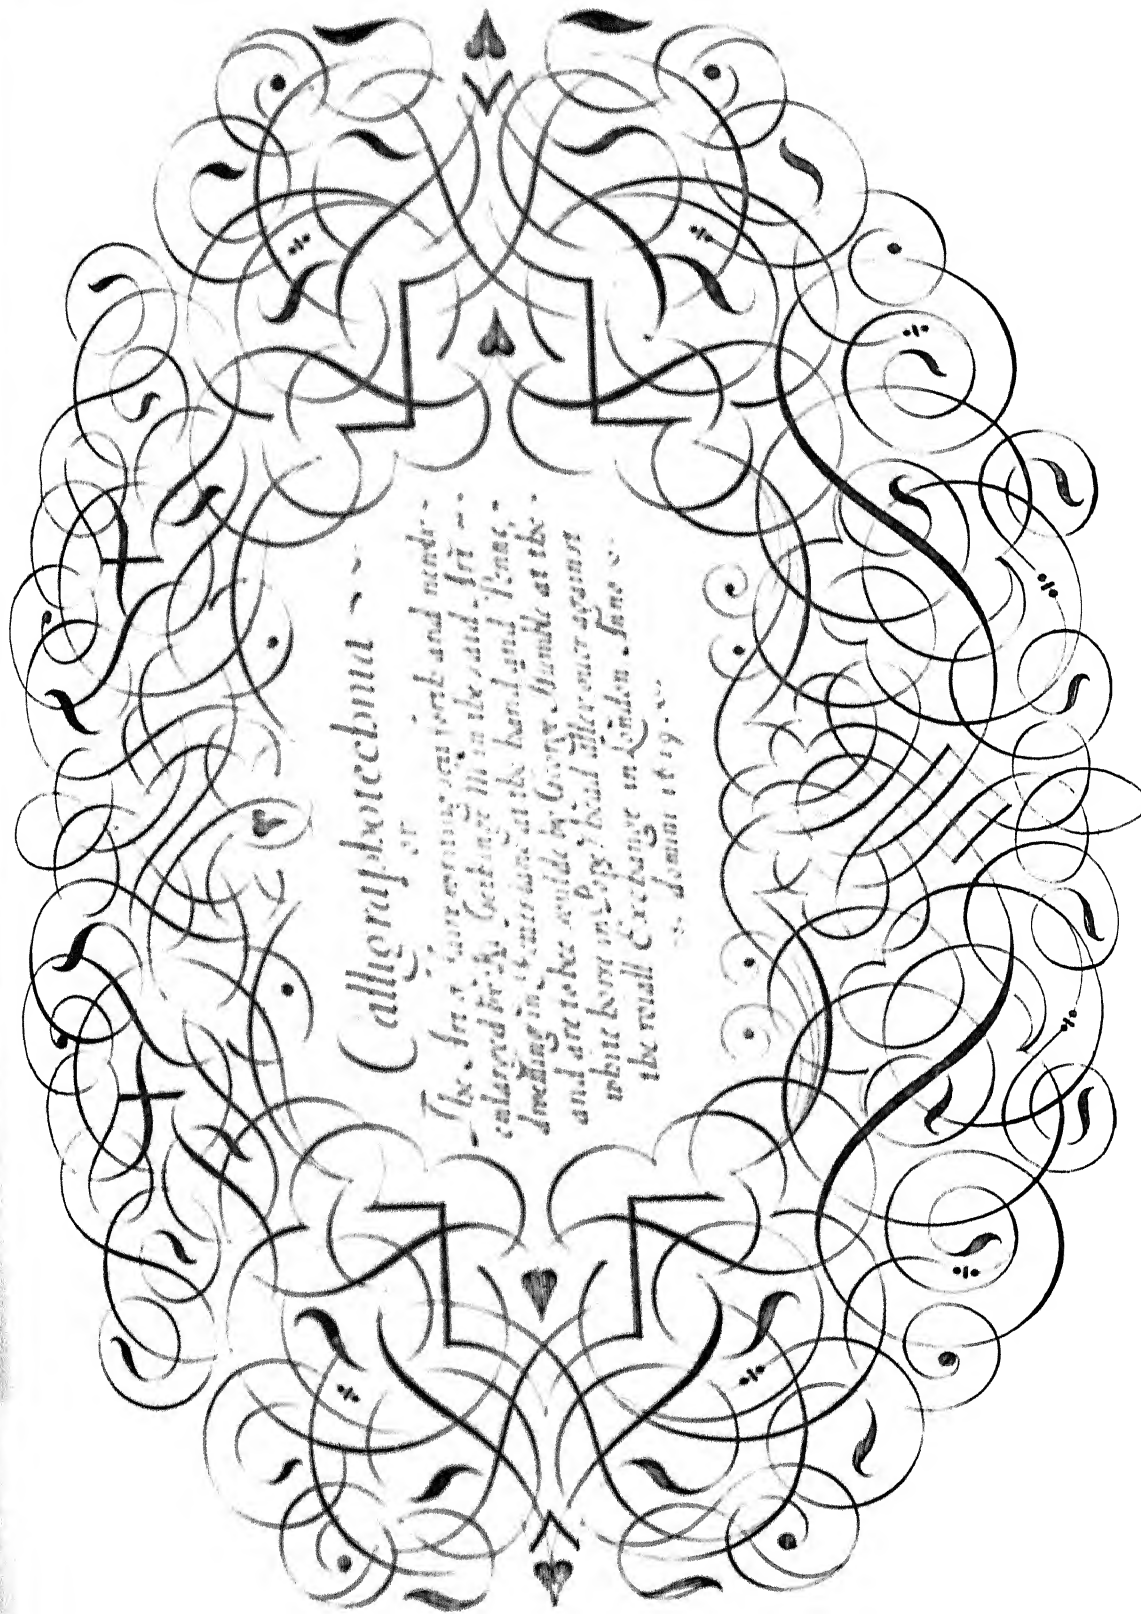 Calligraphotechnia
or
The Art of faire writing
enlarged by Ri: Gethinge Mr. in the said Art
dwelling in at the hand and Penne
and are to bee soulde by George Humble at the
white horse in Popshead alley ouer against
the roiall Exchange in London Anno
domini 1619